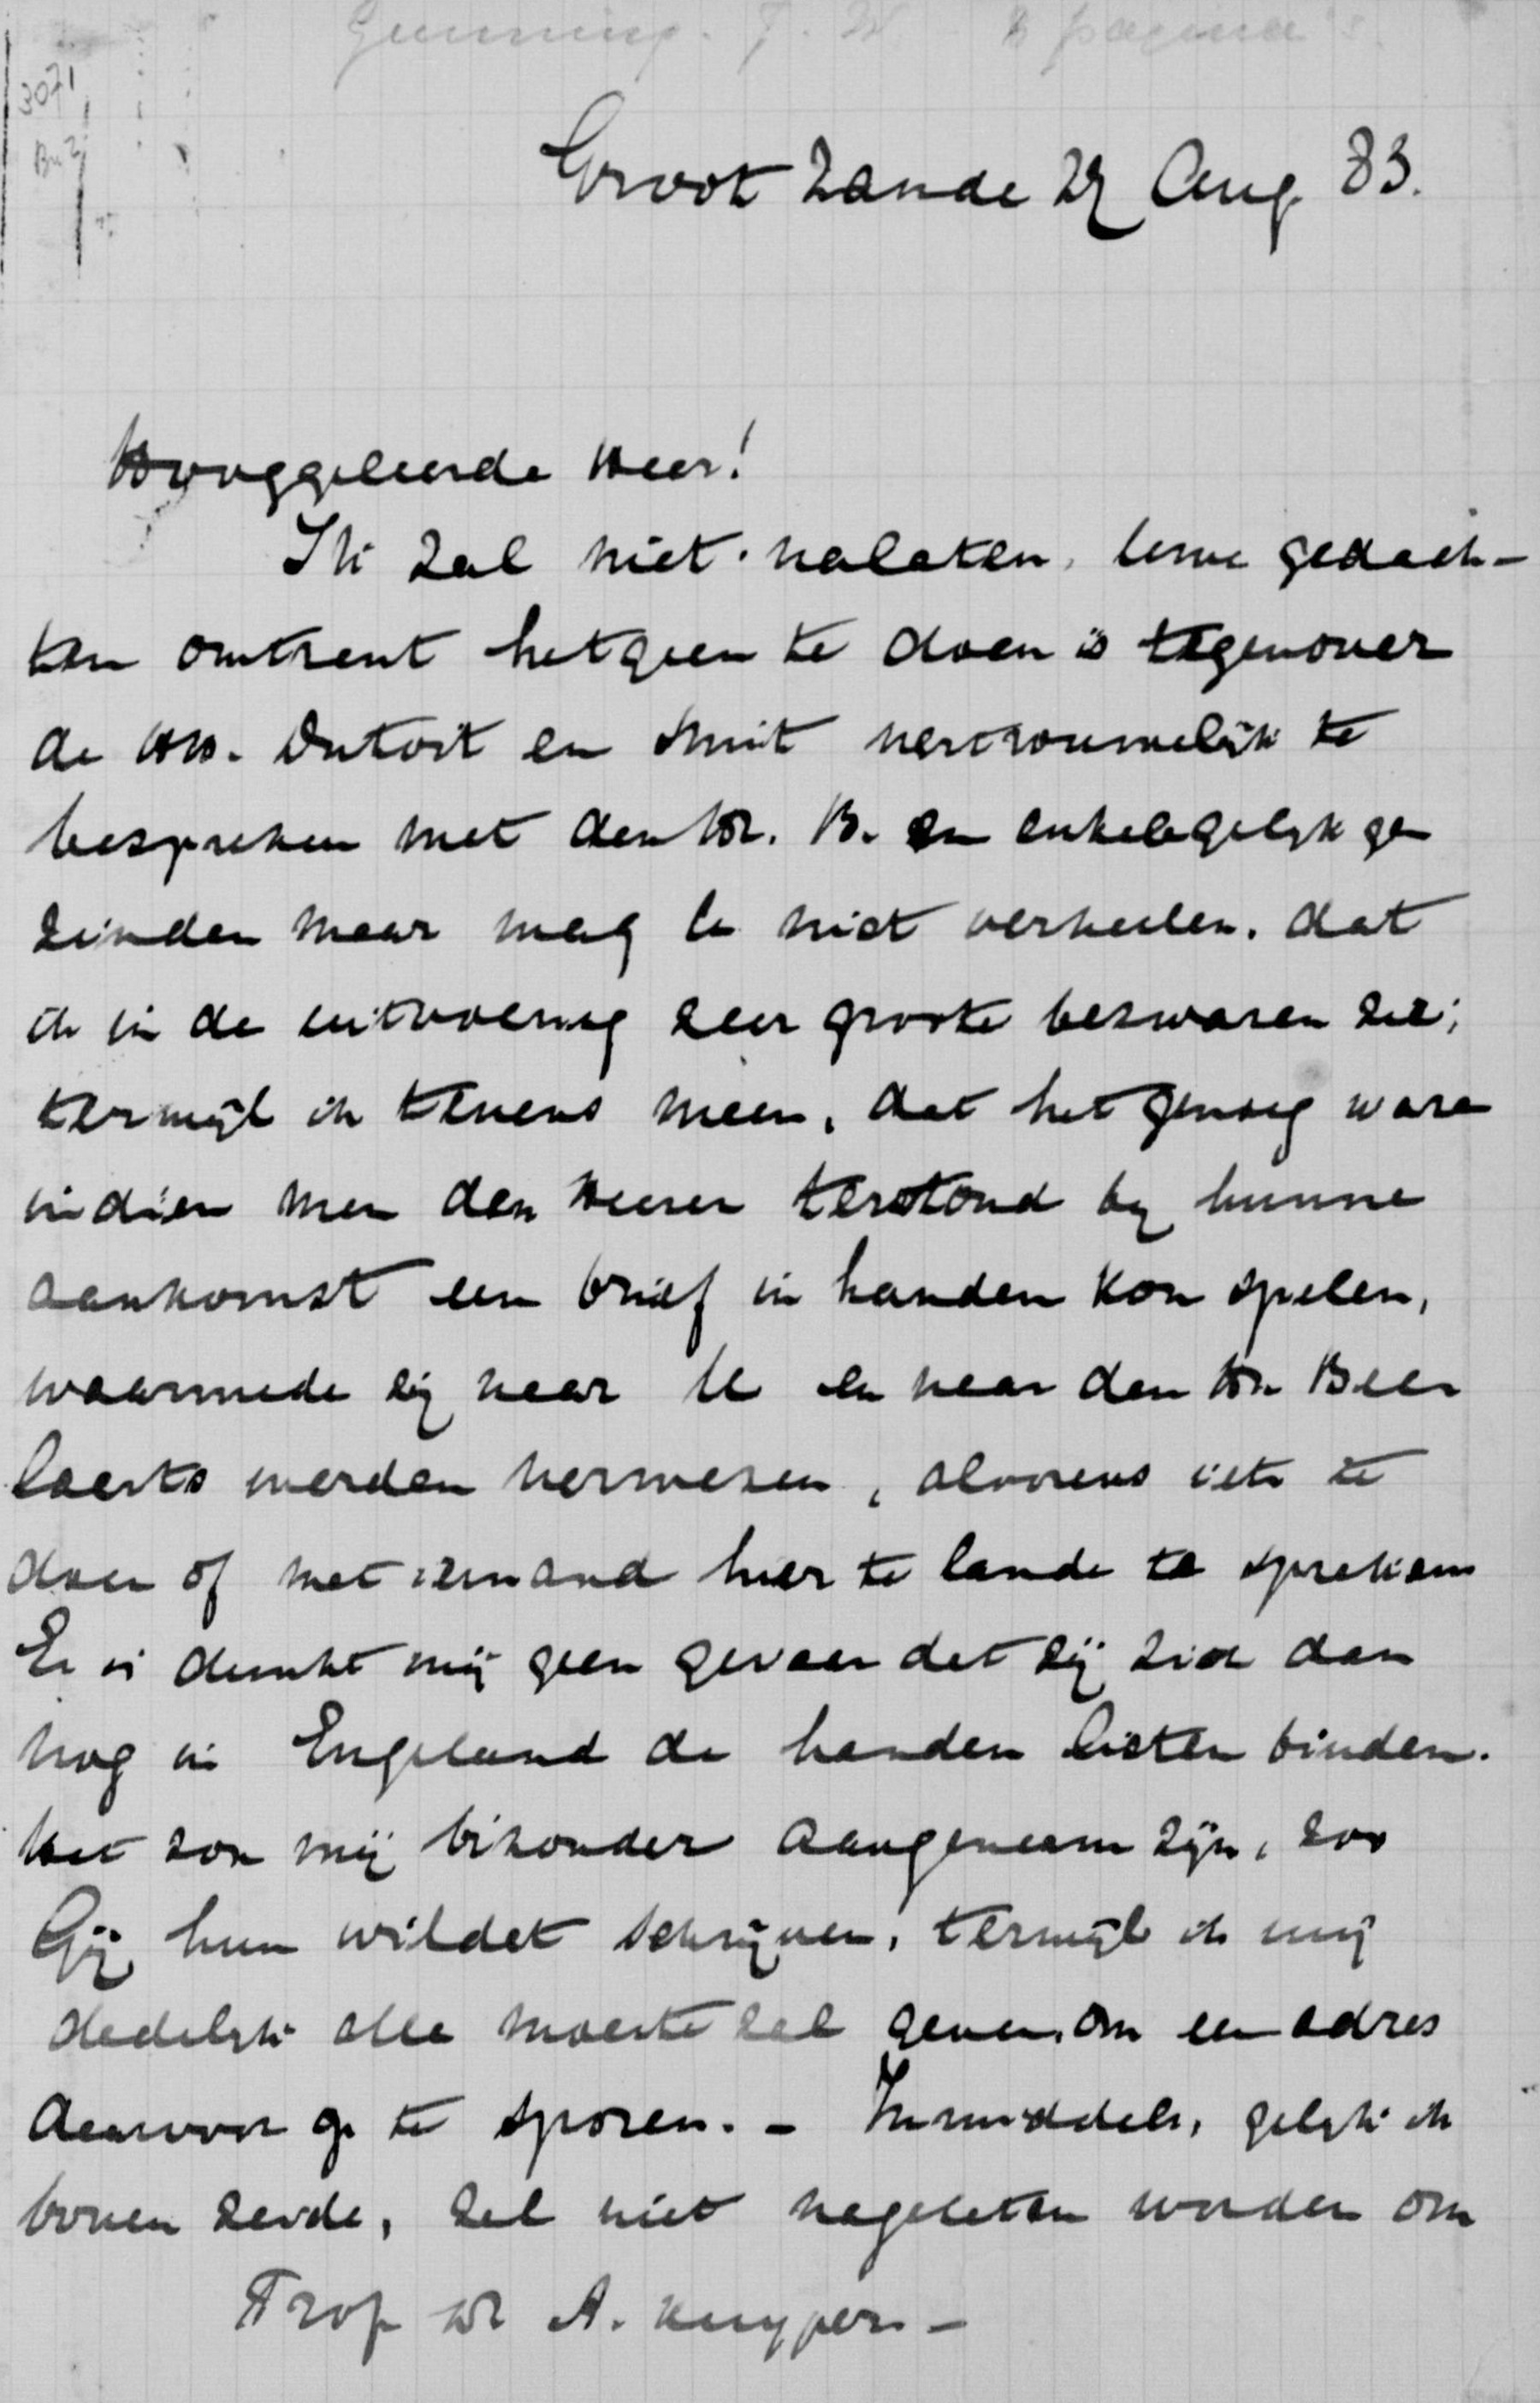 Gunning. J. W 6 pagina's.
3071
Br 2
Groot Zande 29 Aug. 83.
Hooggeleerde Heer!
Ik zal niet nalaten, Uwe gedach-
ten omtrent hetgeen te doen is tegenover
de HH. Dutoit en Smit vertrouwelijk te
bespreken met den Hr. B. en enkele gelijk ge
zinden maar mag U niet verheelen, dat
ik in de uitvoering zeer groote bezwaren zie;
terwijl ik tevens meen, dat het genoeg ware
indien men den Heeren terstond by hunne
aankomst een brief in handen kon spelen,
waarmede zij naar U en naar den Hr Beer
laerts werden verwezen, alvorens iets te
doen of met iemand hier te lande te spreken
Er is dunkt mij geen gevaar dat zij zich dan
nog in Engeland de handen lieten binden.
Het zou mij bizonder aangenaam zijn, zoo
Gij hun wildet schrijven, terwijl ik mij
dadelijk alle moeite zal geven, om een adres
daarvoor op te sporen. - Inmiddels, gelijk ik
boven zeide, zal niet nagelaten worden om
Prof Dr A. Kuyper -